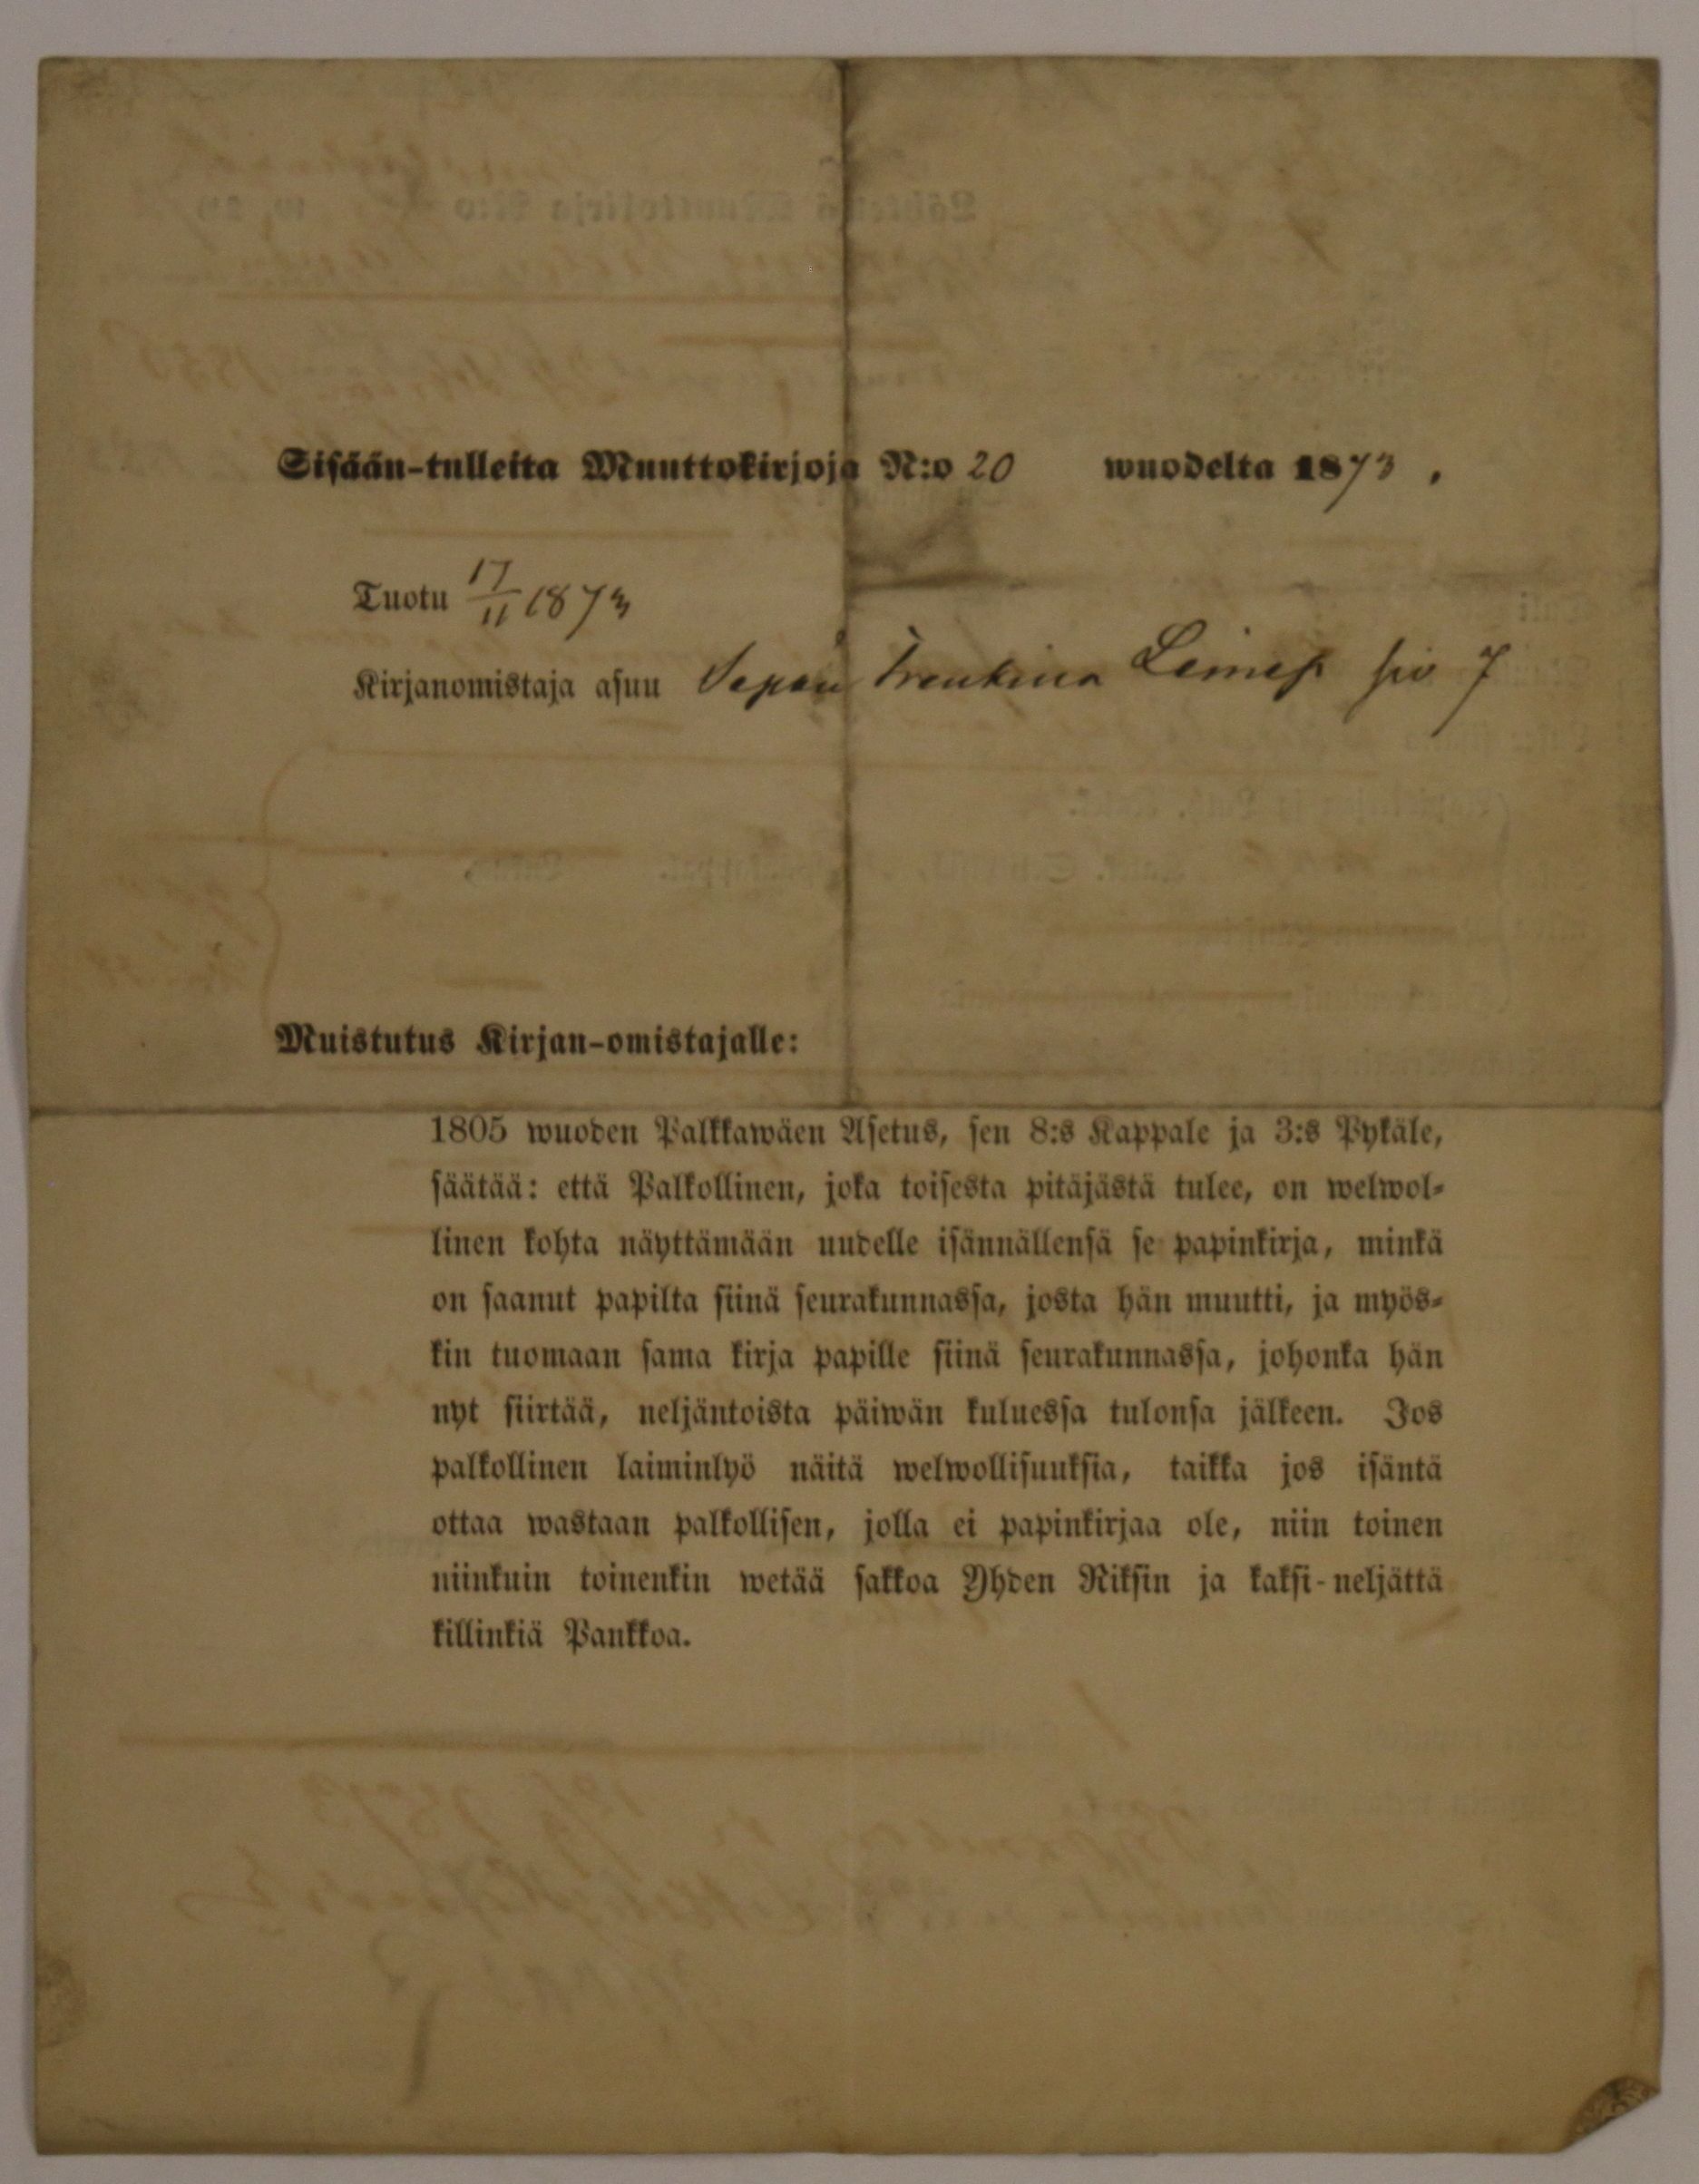 Sisään-tulleita Muuttokirjoja N:o 20 wuodelta 1873.
Tuotu 17/11 1873
Kirjanomistaja asuu Sepän siv 7
Muistutus Kirjan-omistajalle:
1805 wuoden Palkkawäen Asetus, sen 8:s Kappale ja 3:s Pykäle,
säätää: että Palkollinen, joka toisesta pitäjästä tulee, on welwol-
linen kohta näyttämään uudelle isännällensä se papinkirja, minkä
on saanut papilta siinä seurakunnassa, josta hän muutti, ja myös-
kin tuomaan sama kirja papille siinä seurakunnassa, johonka hän
nyt siirtää, neljäntoista päiwän kuluessa tulonsa jälkeen. Jos
palkollinen laiminlyö näitä welwollisuuksia, taikka jos isäntä
ottaa wastaan palkollisen, jolla ei papinkirjaa ole, niin toinen
niinkuin toinenkin wetää sakkoa Yhden Riksin ja kaksi-neljättä
killinkiä Pankkoa.